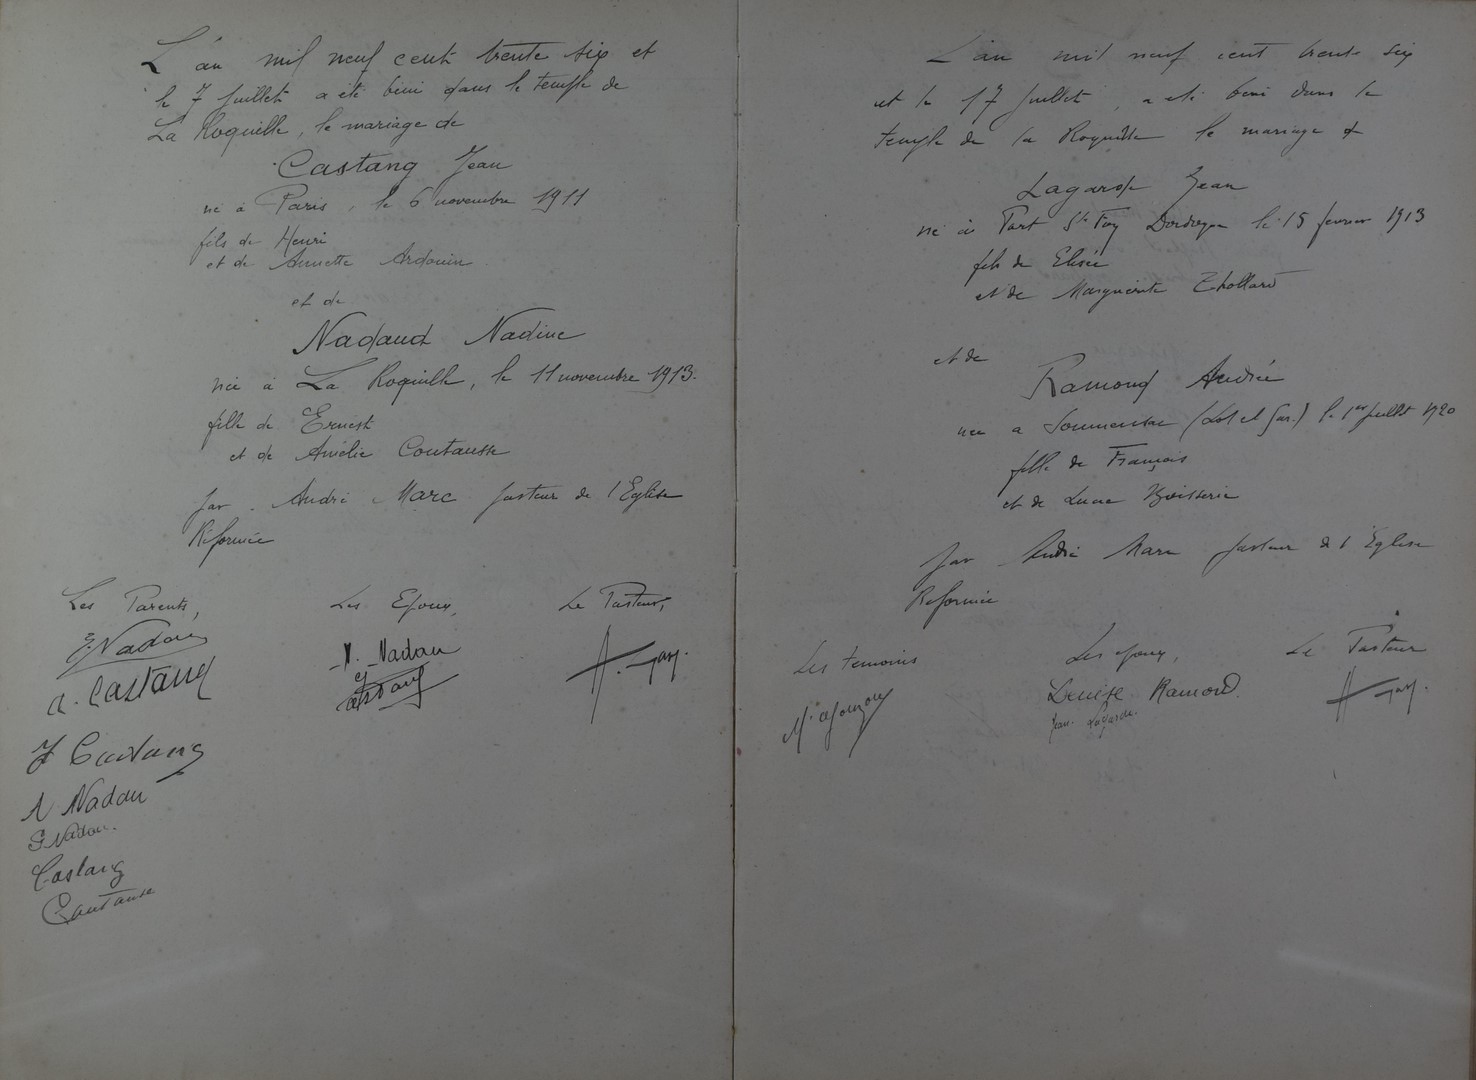 L'an mil neuf cent trente six et
le 7 Juillet a été béni dans le temple de
La Roquille, le mariage de
Castang Jean
né à Paris, le 6 novembre 1911
fils de Henri
et de Annette Ardouin
et de
Nadaud Nadine
née à La Roquille, le 11 novembre 1913.
fille de Ernest
et de Amélie Coutausse
par André Marc pasteur de l'Eglise
Réformée
Les Parents,
E. Nadau
A. Castang
J Castang
A Nadau
G Nadau.
Castang
Coutausse
Les Epoux,
N. Nadau
Castang
Le Pasteur,
A. Marc.
L'an mil neuf cent trente six
et le 17 Juillet, a été béni dans le
temple de la Roquille le mariage de
Lagarde Jean
né à Port Ste Foy Dordogne le 15 février 1913
fils de Elisée
et de Marguerite
et de
Ramond Andrée
née à Soumensac (Lot et Gar.) le 1er Juillet 1920
fille de François
et de Lucie Boisserie
par André Marc pasteur de l'Eglise
Réformée
Les témoins
Les époux,
Denise Ramond.
Jean. Lagarde.
Le Pasteur
A. Marc.